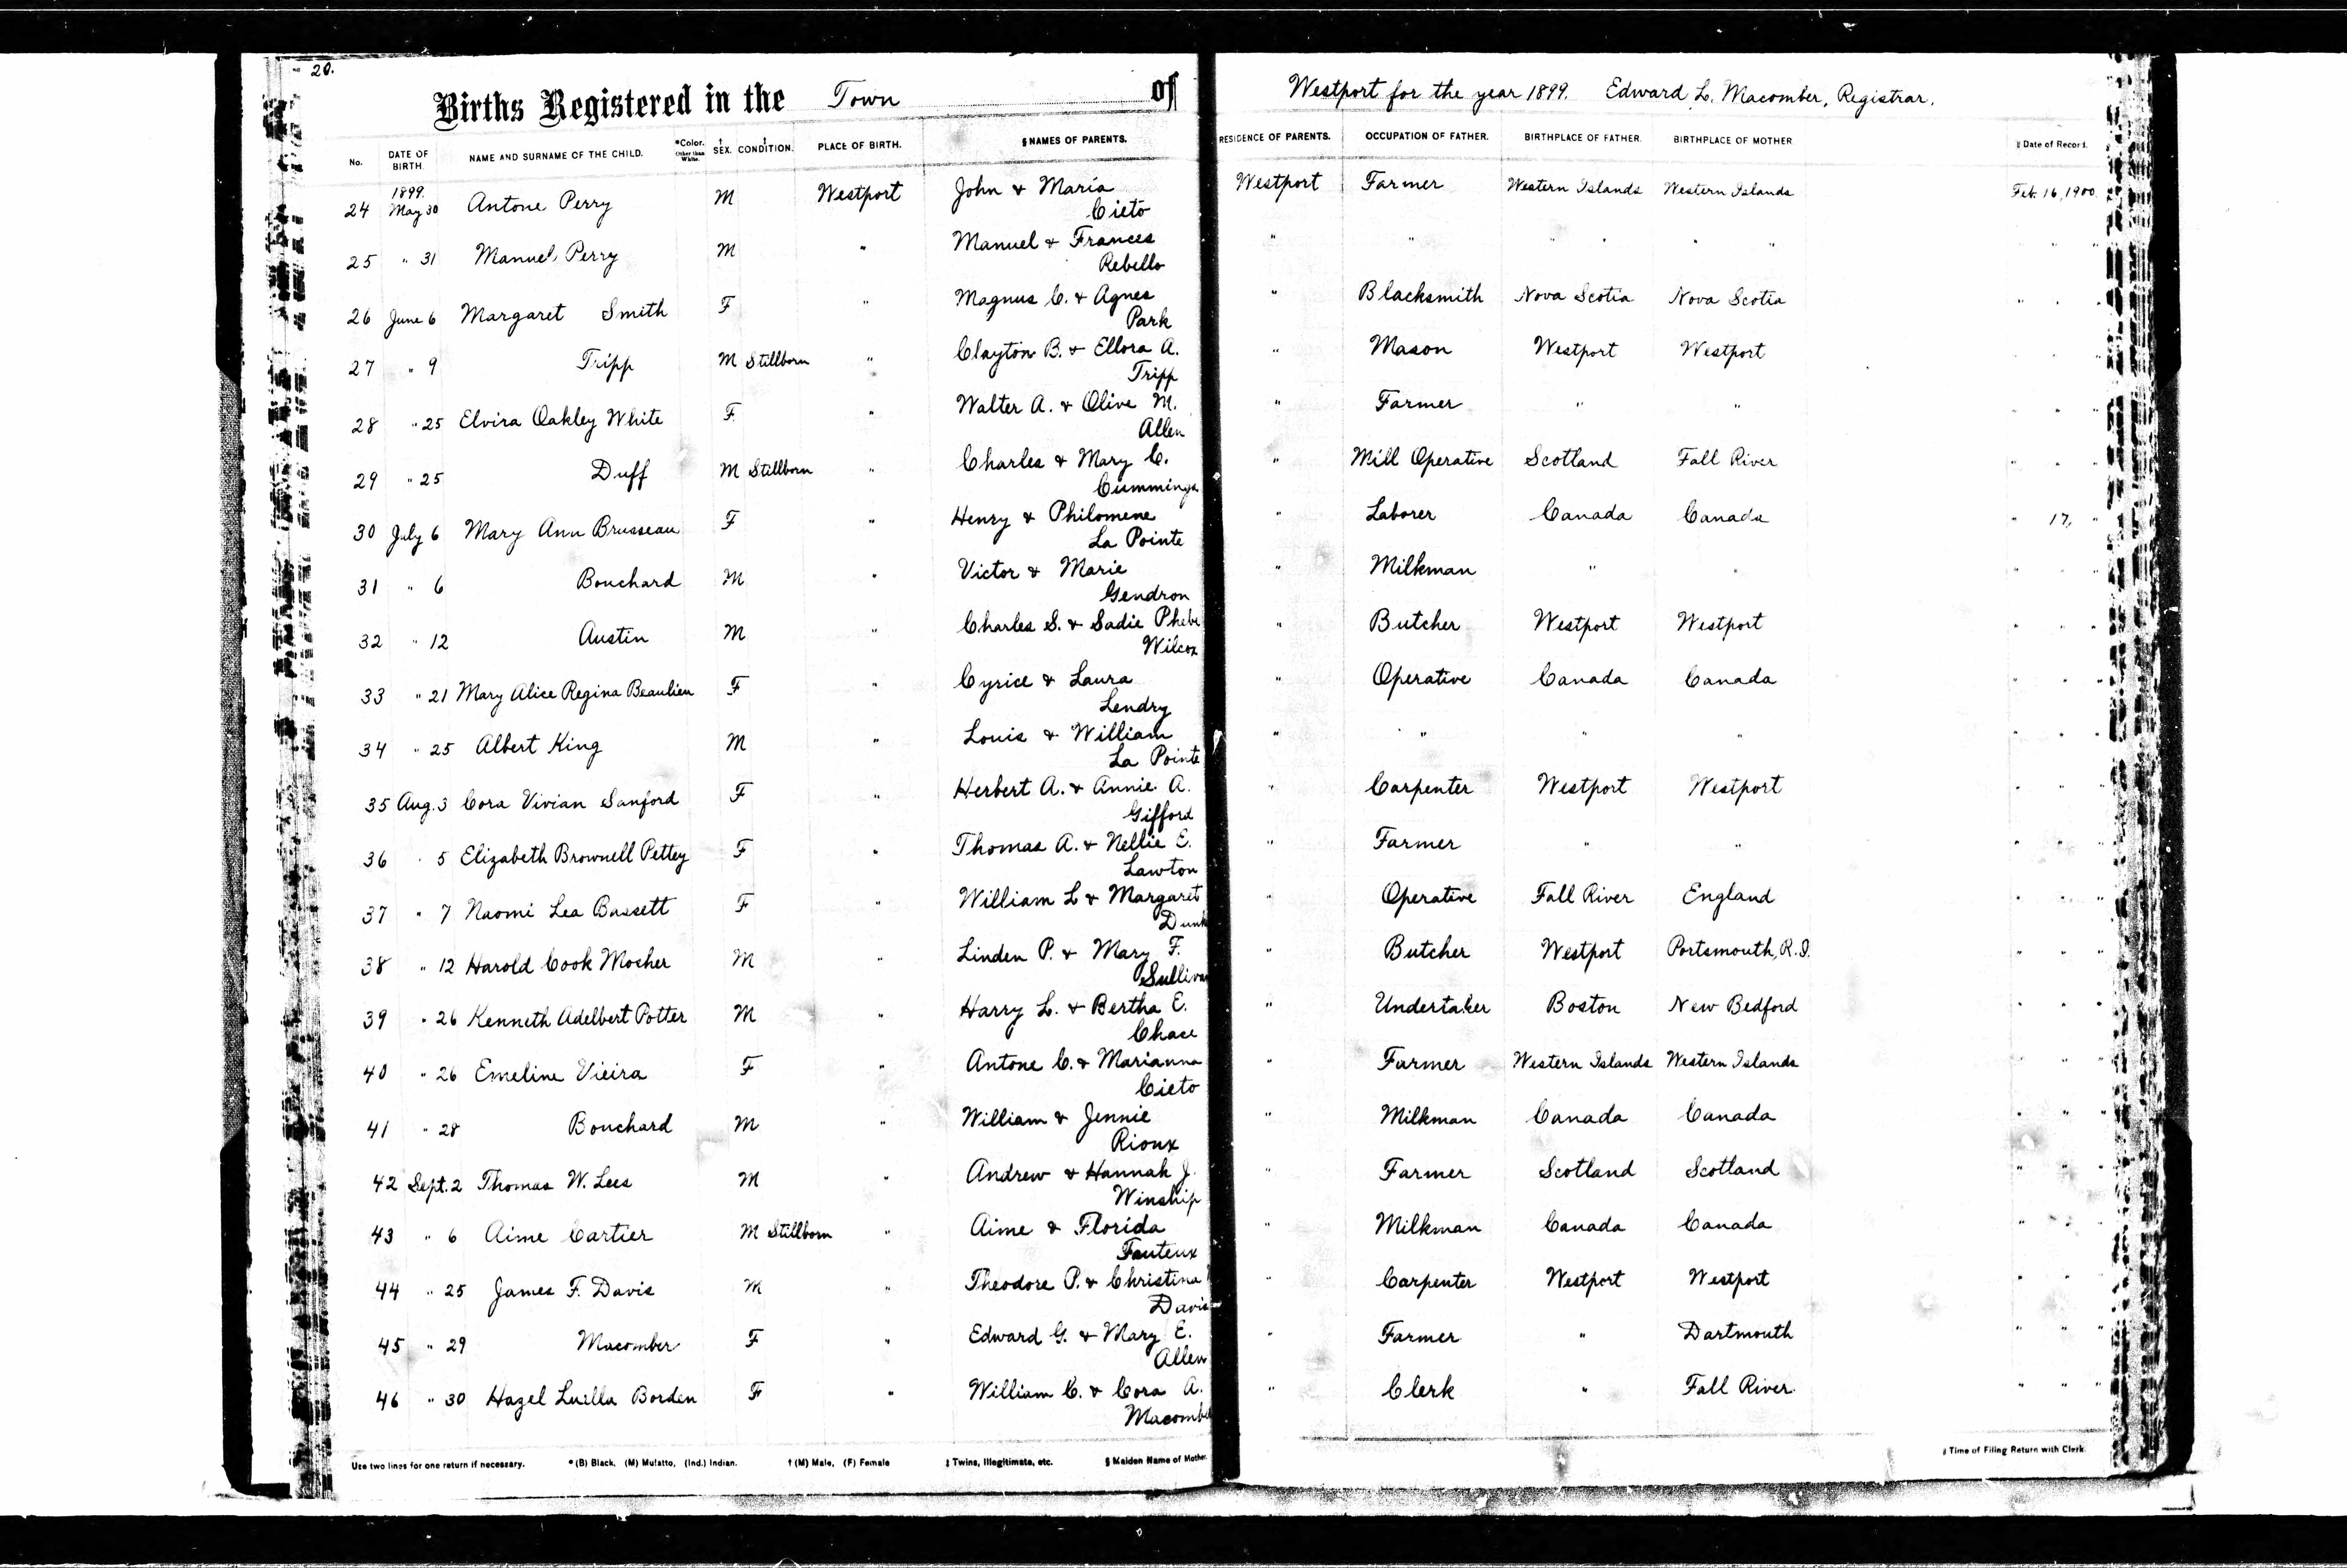 20.
Births Registered in the Town of Westport for the year 1899. Edward L. Macomber, Registrar.
No. DATE OF BIRTH. NAME AND SURNAME OF THE CHILD. *Color. Other than White. † SEX. ‡ CONDITION. PLACE OF BIRTH. § NAMES OF PARENTS. RESIDENCE OF PARENTS. OCCUPATION OF FATHER. BIRTHPLACE OF FATHER. BIRTHPLACE OF MOTHER. ‖ Date of Record.
1899.
24 May 30 Antone Perry M Westport John & Maria Westport Farmer Western Islands Western Islands Feb. 16, 1900.
Cieto
25 " 31 Manuel Perry M " Manuel & Frances " " " " " " " "
Rebello
26 June 6 Margaret Smith F " Magnus C. & Agnes " Blacksmith Nova Scotia Nova Scotia " " "
Park
27 " 9 Tripp M Stillborn " Clayton B. & Ellora A. " Mason Westport Westport " " "
Tripp
28 " 25 Elvira Oakley White F. " Walter A. & Olive M. " Farmer " " " " "
Allen
29 " 25 Duff M Stillborn " Charles & Mary C. " Mill Operative Scotland Fall River " " "
Cummings
30 July 6 Mary Ann Brusseau F " Henry & Philomene " Laborer Canada Canada " 17, "
La Pointe
31 " 6 Bouchard M " Victor & Marie " Milkman " " " " "
Gendron
32 " 12 Austin M " Charles S. & Sadie Phebe " Butcher Westport Westport " " "
Wilcox
33 " 21 Mary Alice Regina Beaulieu F " Cyrice & Laura " Operative Canada Canada " " "
Lendry
34 " 25 Albert King M " Louis & William " " " " " " "
La Pointe
35 Aug. 3 Cora Vivian Sanford F " Herbert A. & Annie A. " Carpenter Westport Westport " " "
Gifford
36 " 5 Elizabeth Brownell Pettey F " Thomas A. & Nellie E. " Farmer " " " " "
Lawton
37 " 7 Naomi Lea Bassett F " William L & Margaret " Operative Fall River England " " "
Dunk
38 " 12 Harold Cook Mosher M " Linden P. & Mary F. " Butcher Westport Portsmouth, R.I. " " "
Sullivan
39 " 26 Kenneth Adelbert Potter M " Harry L. & Bertha E. " Undertaker Boston New Bedford " " "
Chace
40 " 26 Emeline Vieira F " Antone C. & Marianna " Farmer Western Islands Western Islands " " "
Cieto
41 " 28 Bouchard M " William & Jennie " Milkman Canada Canada " " "
Rioux
42 Sept. 2 Thomas W. Lees M " Andrew & Hannah J. " Farmer Scotland Scotland " " "
Winship
43 " 6 Aime Cartier M Stillborn " Aime & Florida " Milkman Canada Canada " " "
Fauteux
44 " 25 James F. Davis M " Theodore P. & Christina " Carpenter Westport Westport " " "
Davis
45 " 29 Macomber F " Edward G. & Mary E. " Farmer " Dartmouth " " "
Allen
46 " 30 Hazel Luella Borden F " William C. & Cora A. " Clerk " Fall River " " "
Macomber
‖ Time of Filing Return with Clerk.
Use two lines for one return if necessary. *(B) Black, (M) Mulatto, (Ind.) Indian. †(M) Male, (F) Female ‡ Twins, Illegitimate, etc. § Maiden Name of Mother.